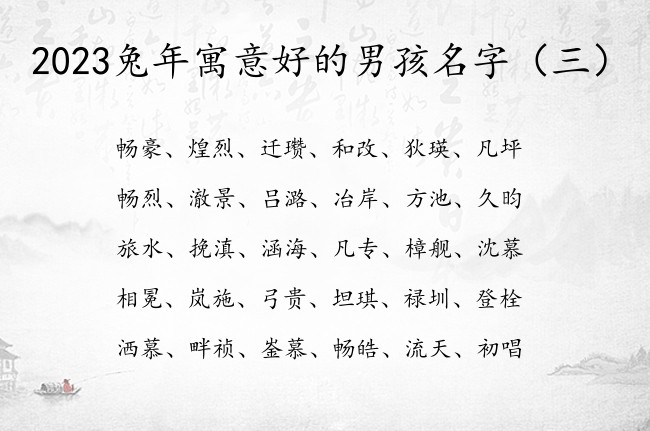 2023兔年寓意好的男孩名字（三）
畅豪、煌烈、迁瓒、和改、狄瑛、凡坪
畅烈、澈景、吕潞、冶岸、方池、久昀
旅水、挽滇、涵海、凡专、樟舰、沈慕
相冕、岚施、弓贵、坦琪、禄圳、登栓
洒慕、畔祯、崟慕、畅皓、流天、初唱